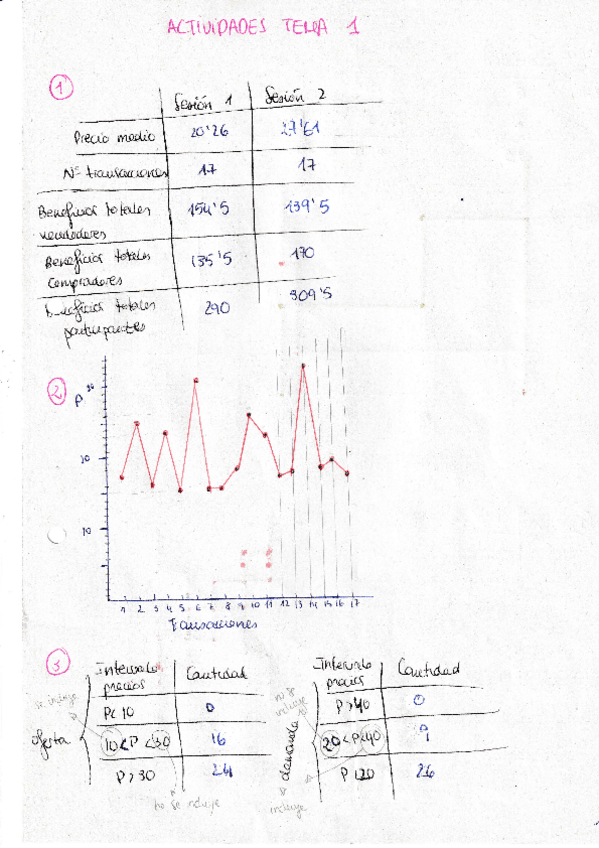 ACTIVIDADES TEMA 1
1
Sesión 1 Sesión 2
Precio medio 20'26 27'61
Nº transacciones 17 17
Beneficios totales vendedores 154'5 139'5
Beneficios totales compradores 135'5 170
totales participantes 290 309'5
2
P
10
10
1 2 3 4 5 6 7 8 9 10 11 12 13 14 15 16 17
Transacciones
3
Intervalo precios Cantidad
se incluye
oferta
P< 10 0
10 < P < 30 16
P > 30 24
no se incluye
Intervalo precios Cantidad
no se incluye
demanda
P > 40 0
20 < P < 40 9
P < 20 26
incluye